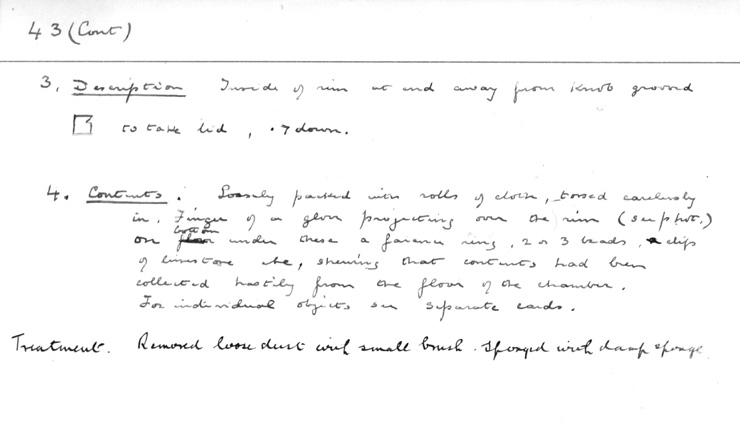 43 (Cont)
3. Description Inside of rim at end away from knob grooved
to take lid, .7 down.
4. Contents. Loosely packed with rolls of cloth, tossed carelessly
in. Finger of a glove projecting over the rim (see phot.)
on floor bottom under these a faience ring, 2 or 3 beads, chips
of limestone etc, shewing that contents had been
collected hastily from the floor of the chamber.
For individual objects see separate cards.
Treatment. Removed loose dust with small brush. Sponged with damp sponge